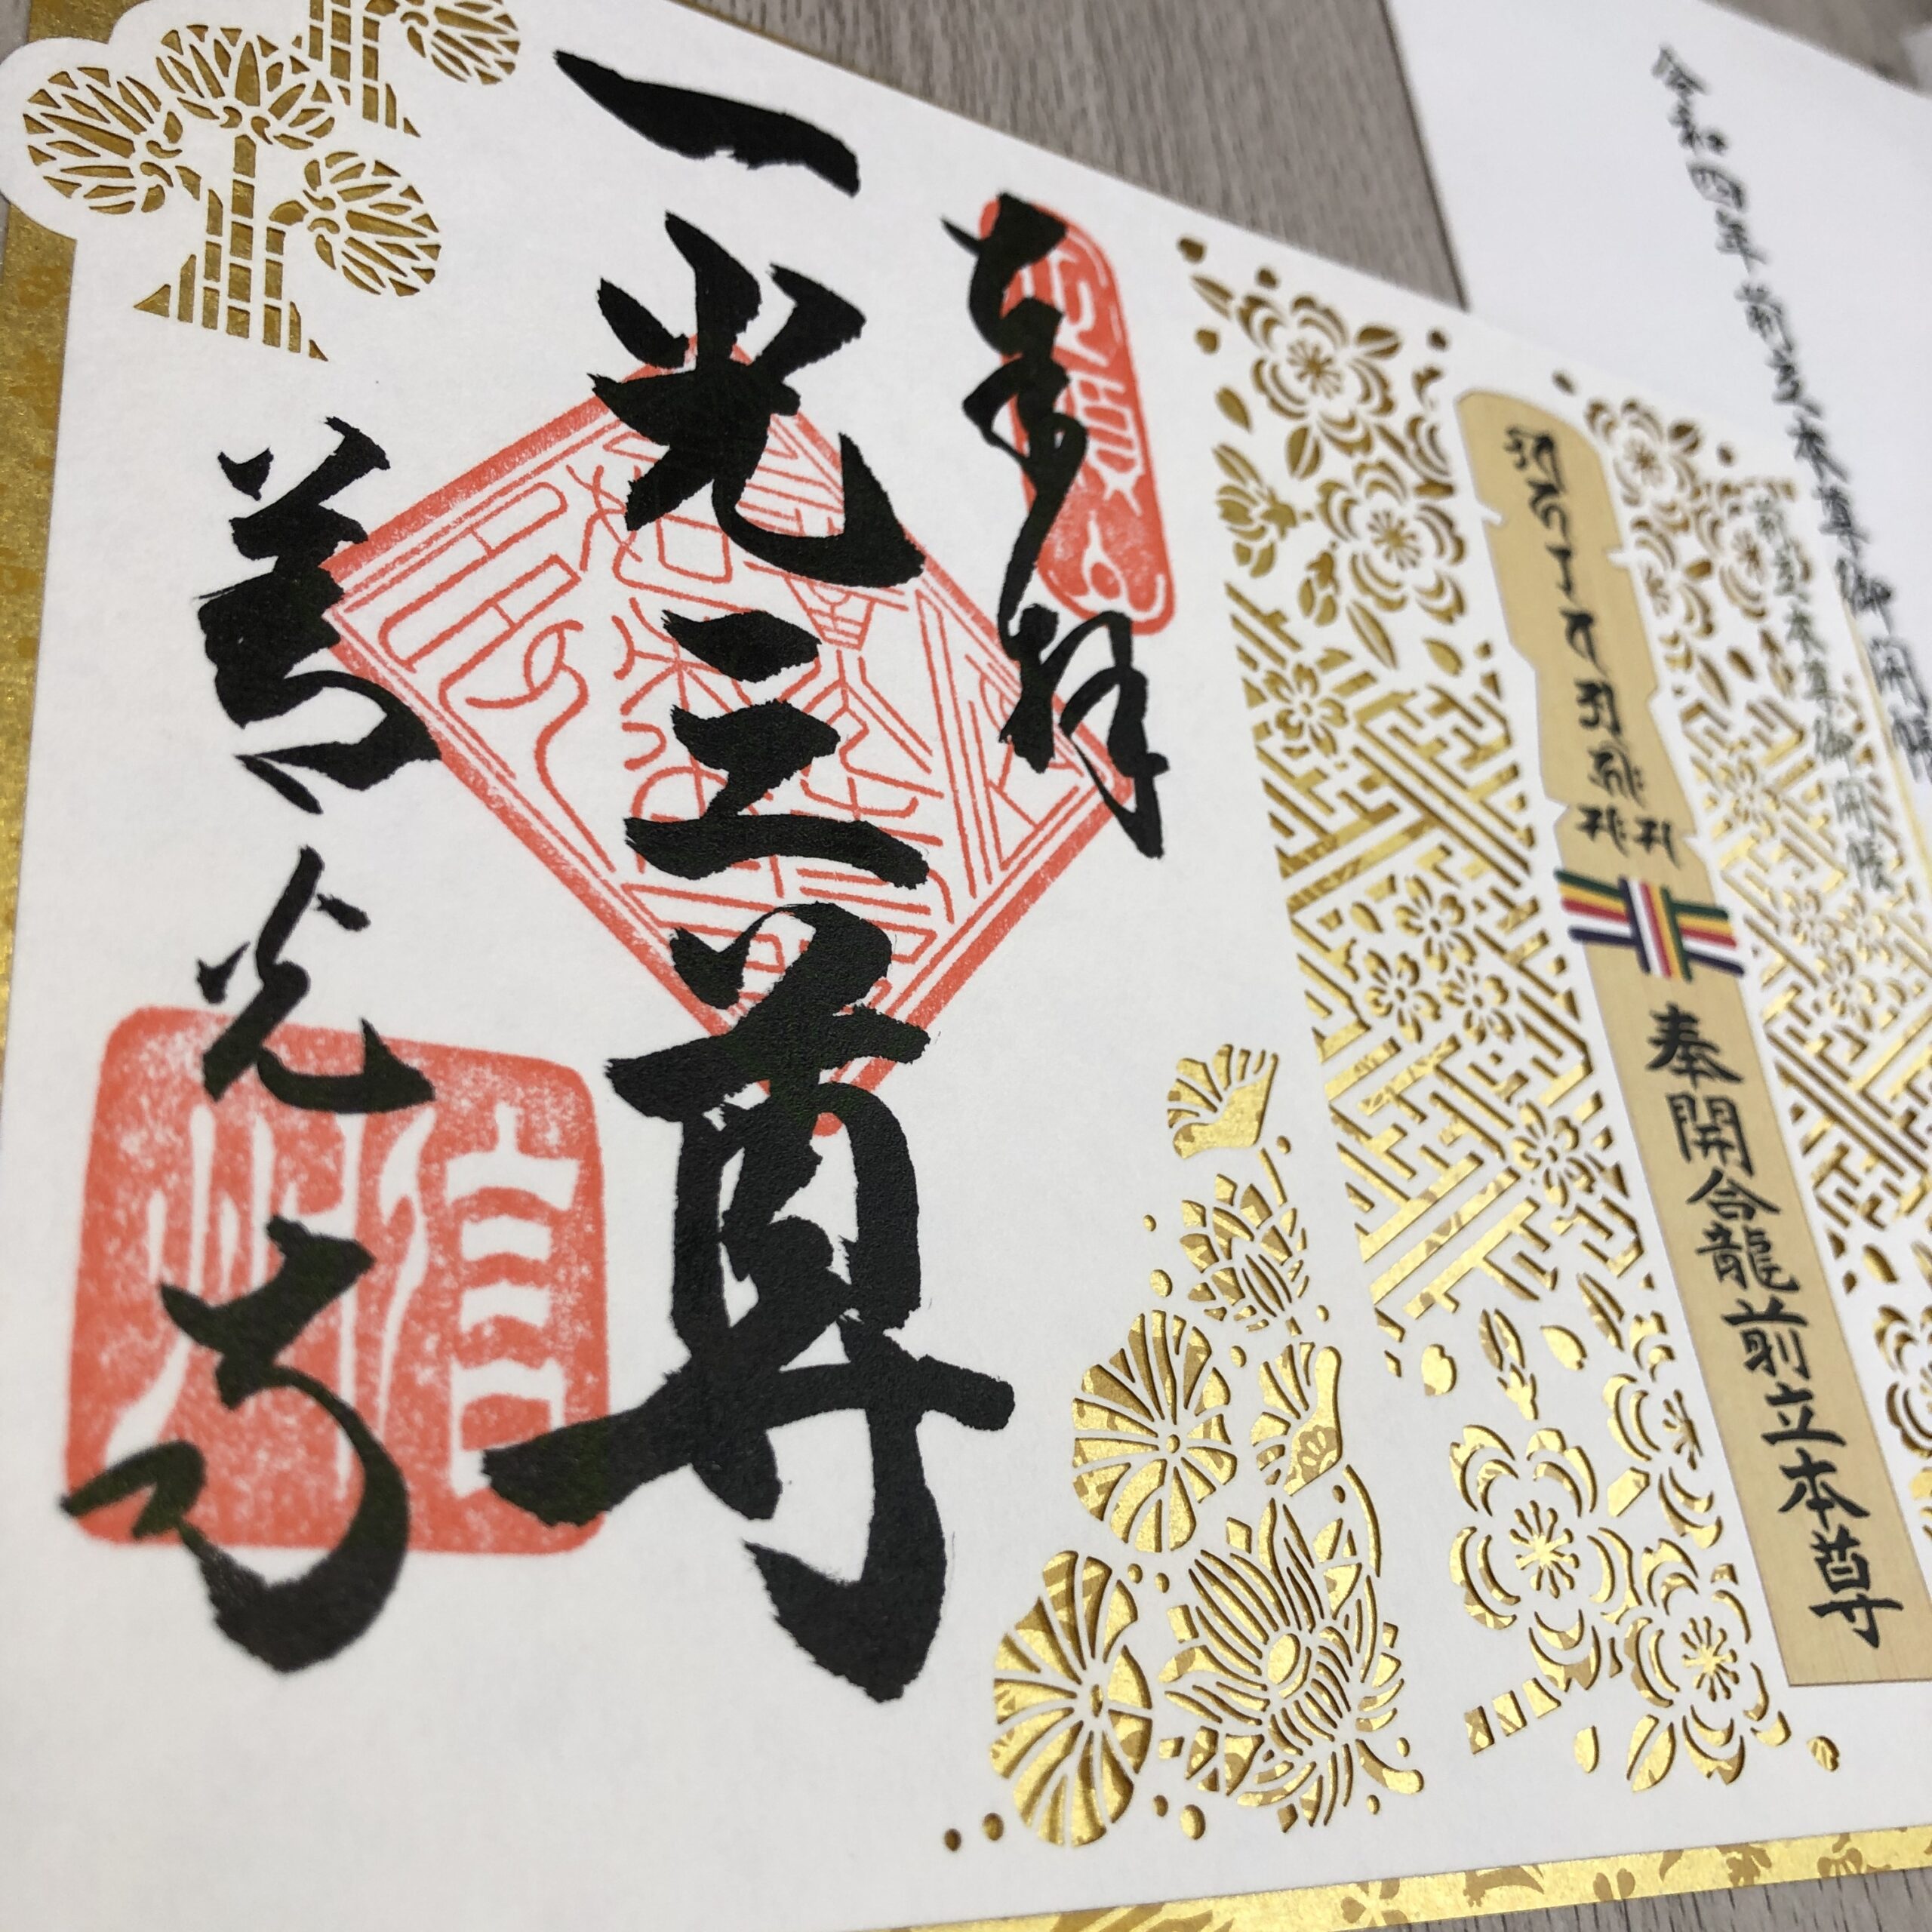 令和四年前立本尊御開帳
前立本尊御開帳
奉開合龍前立本尊
奉拝
一光三尊
善光寺
信州